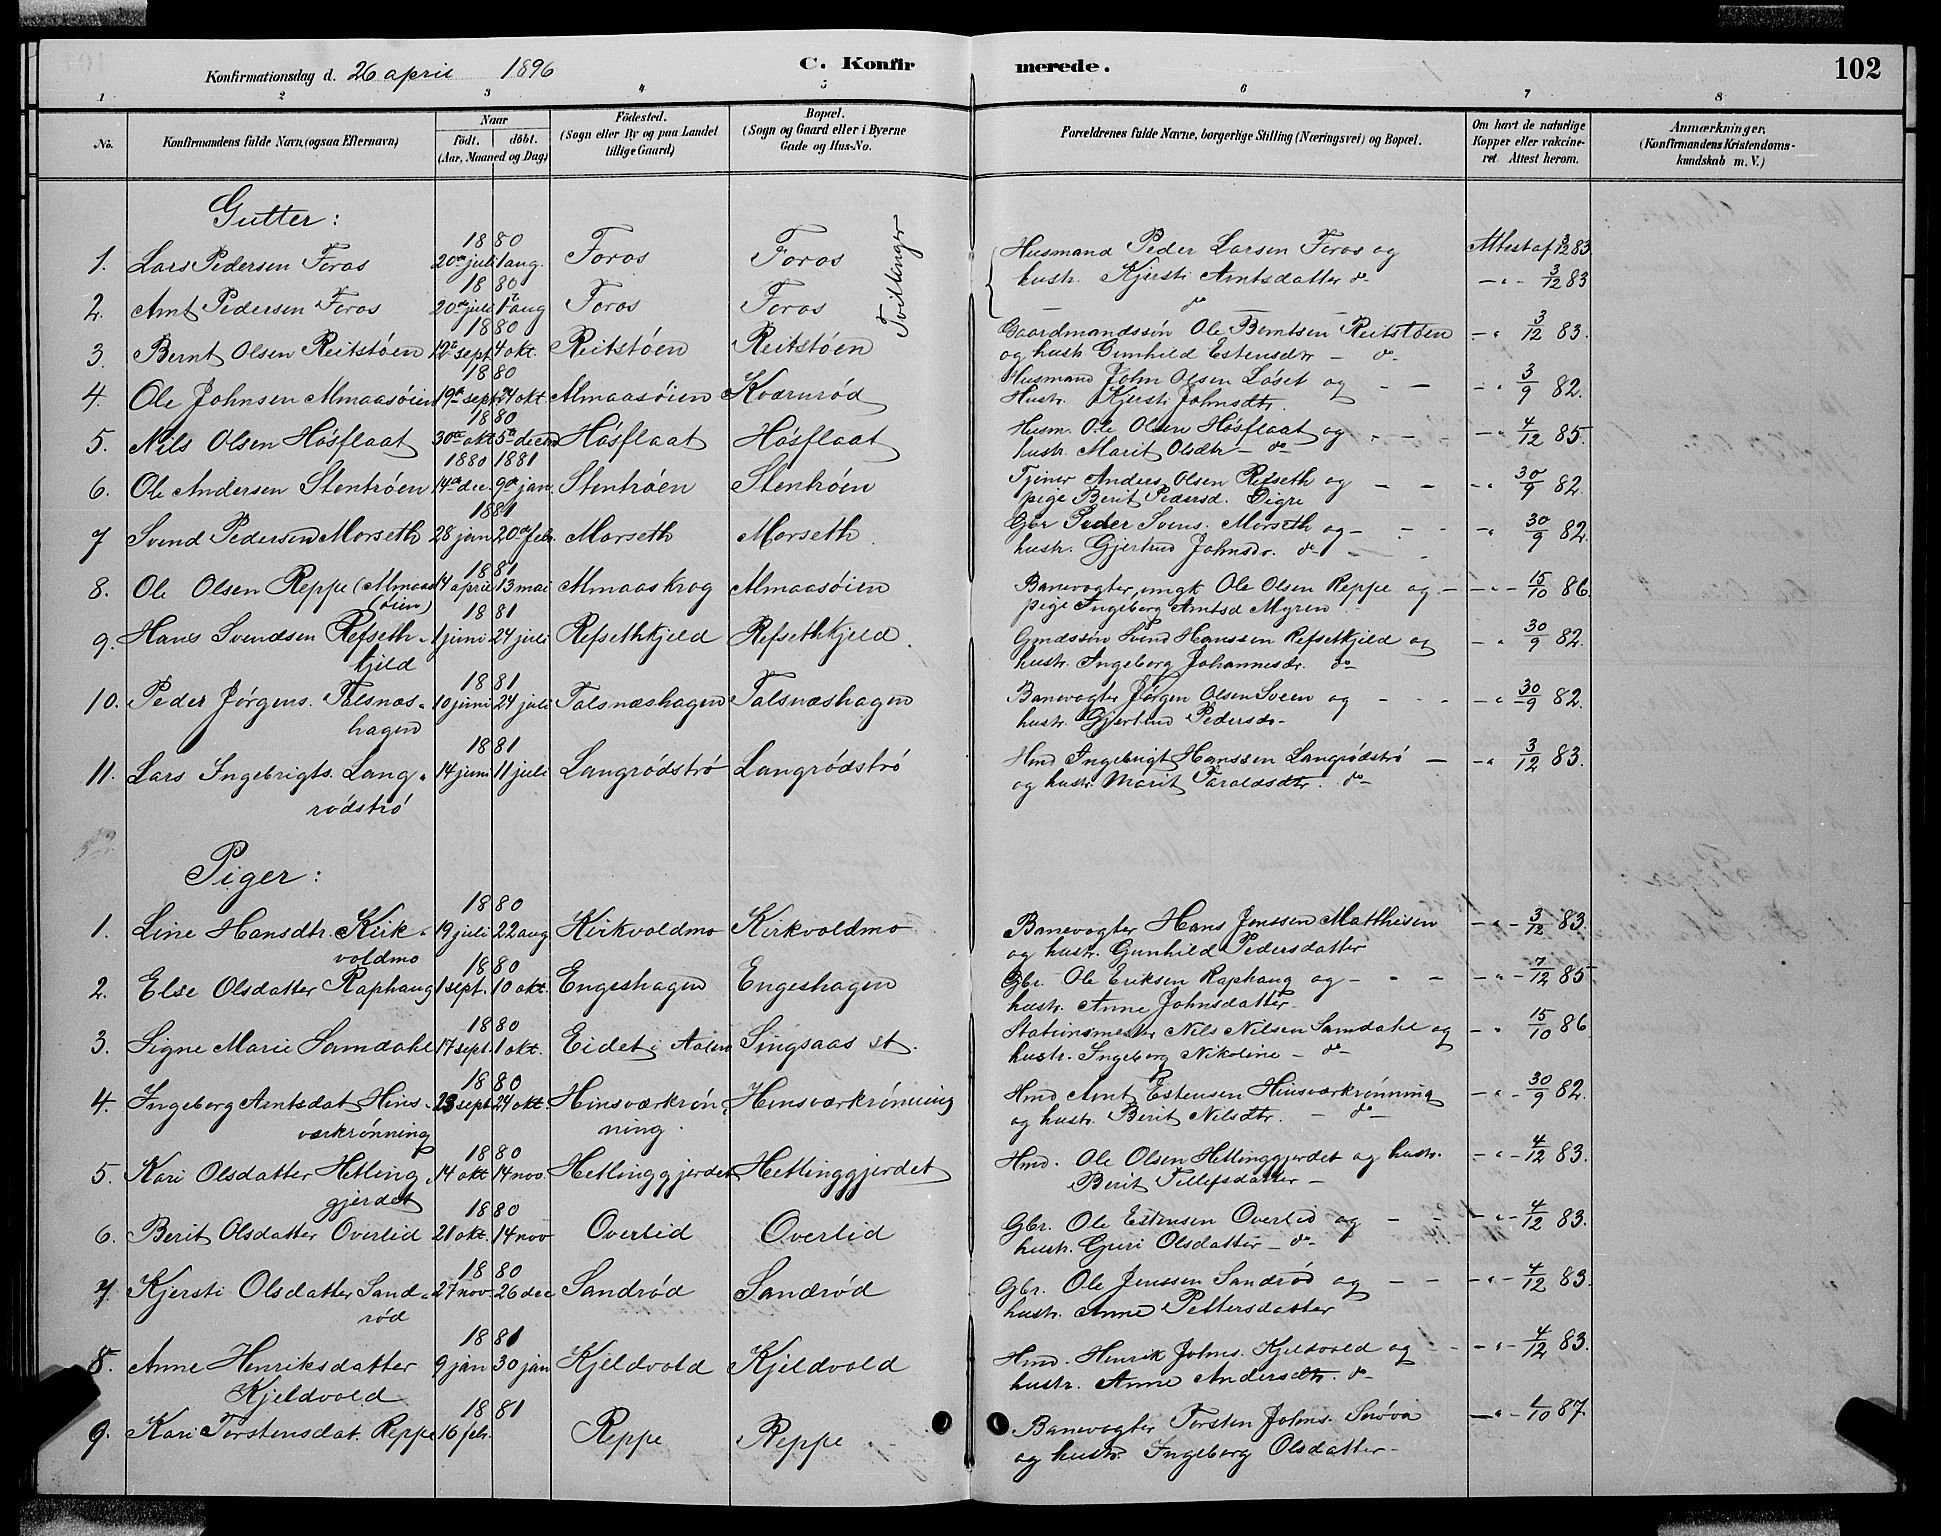 Konfirmationsdag d. 26 april 1896
C. Konfirmerede.
102
1 2 3 4 5 6 7 8
No.
Konfirmandens fulde Navn, (ogsaa Efternavn)
Naar
født. døbt.
(Aar, Maaned og Dag)
Fødested.
(Sogn eller By og paa Landet
tillige Gaard)
Bopæl.
(Sogn og Gaard eller i Byerne
Gade og Hus-No.
Forældrenes fulde Navne, borgerlige Stilling (Næringsvei) og Bopæl.
Om havt de naturlige
Kopper eller vakcine-
ret. Attest herom.
Anmærkninger.
(Konfirmandens Kristendoms-
kundskab m. V.)
Gutter:
Tvillinger
1880
1. Lars Pedersen Foros 20de juli 1 aug. Foros Foros Husmand Peder Larsen Foros og Attest af 3/12 83
hustr. Kjersti Arntsdatter do
1880
2. Arnt Pedersen Foros 20de juli 1 aug Foros Foros do — " — 3/12 83
1880
3. Bernt Olsen Reitstøen 12te sept 4 okt. Reitstøen Reitstøen Gaardmandssøn Ole Berntsen Reitstøen — " 3/12 83.
og hustr Gunhild Estensdtr — do
1880
4. Ole Johnsen Almaasøien 19de sept 24 okt Almaasøien Kværnrød Husmand John Olsen Løset og — — — " 3/9 82.
Hustr. Kjersti Johnsdtr.
1880
5. Nils Olsen Høsflaat 30te okt 5te decem Høsflaat Høsflaat Husm. Ole Olsen Høsflaat og — " 4/12 85.
hustr. Marit Olsdtr — do
1880 1881
6. Ole Andersen Stenhrøen 14de dec. 9de jan. Stenhrøen Stenhrøen Tjener Anders Olsen Refseth og — — — " 30/9 82.
pige Berit Pedersd. Digre
1881
7 Svend Pedersen Morseth 28 jan 20de febr. Morseth Morseth. Gbr Peder Svens. Morseth og — — " 30/9 82.
hustr. Gjertrud Johnsdr. do
1881
8. Ole Olsen Reppe (Almaas 14 april 13 mai Almaaskrog Almaasøien Banevogter, ungk Ole Olsen Reppe og — — " — 15/10 86
(øien) pige Ingeborg Arntsd Myren
1881
9. Hans Svendsen Refseth- 1 juni 24 juli Refsethkjeld Refsethkjeld. Gmdssøn Svend Hanssen Refsethkjeld og — " 30/9 82.
kjeld hustr. Ingeborg Johannesdr. do
1881
10. Peder Jørgens. Talsnæs- 10 juni 24 juli Talsnæshagen Talsnæshagen Banevogter Jørgen Olsen Sveen og — — — " 30/9 82.
hagen hustr. Gjertrud Pedersdr-
1881
11. Lars Ingebrigts. Lang- 14 juni 11 juli Langrødstrø Langrødstrø Hmd Ingebrigt Hanssen Langrødstrø — — " 3/12 83.
rødstrø og hustr. Marit Taraldsdtr. do
Piger:
1880
1. Line Hansdtr. Kirk- 19 juli 22 aug Kirkvoldmo Kirkvoldmo Banevogter Hans Jenssen Matthisen — " — 3/12 83.
voldmo og hustr. Gunhild Pedersdatter
1880
2. Else Olsdatter Raphaug 1 sept. 10 okt. Engeshagen Engeshagen Gbr. Ole Eriksen Raphaug og — — — — " — 7/12 85
hustr. Anne Johnsdatter
1880
3. Signe Marie Samdahl 17 sept. 1 okt. Eidet i Aalen Singsaas st. Stationsmester Nils Nilsen Samdahl og — " 15/10 86
hustr. Ingeborg Nikoline — do
1880
4. Ingeborg Arntsdat. Hins- 23 sept 24 okt. Hinsværkrøn- Hinsværkrønning Hmd Arnt Estensen Hinsværkrønning — " — 30/9 82.
værkrønning ning. og hustr. Berit Nilsdtr. — do
1880
5. Kari Olsdatter Hetling- 14 okt 14 nov. Hetlinggjerdet Hetlinggjerdet Hmd. Ole Olsen Hetlinggjerdet og hustr. — " — 4/12 83.
gjerdet Berit Tillefsdatter —
1880
6. Berit Olsdatter Overlid 21 okt. 14 nov Overlid Overlid Gbr. Ole Estensen Overlid og — — — " — 4/12 83.
hustr. Guri Olsdatter — do
1880
7. Kjersti Olsdatter Sand- 27 nov. 26 dec Sandrød Sandrød Gbr. Ole Jenssen Sandrød og — — — " — 4/12 83.
rød hustr. Anne Pettersdatter
1881
8. Anne Henriksdatter 9 jan 30 jan Kjeldvold Kjeldvold Hmd. Henrik Johns. Kjeldvold og — — " — 4/12 83.
Kjeldvold hustr. Anne Andersdtr. do
1881
9. Kari Torstensdat. Reppe 16 febr. Reppe Reppe Banevogter Torsten Johns. Snøva — " — /10 87
og hustr. Ingeborg Olsdatter —